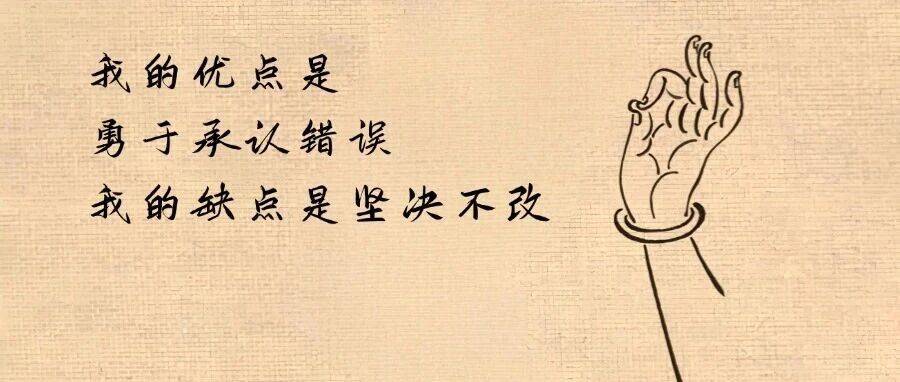 我的优点是
勇于承认错误
我的缺点是坚决不改